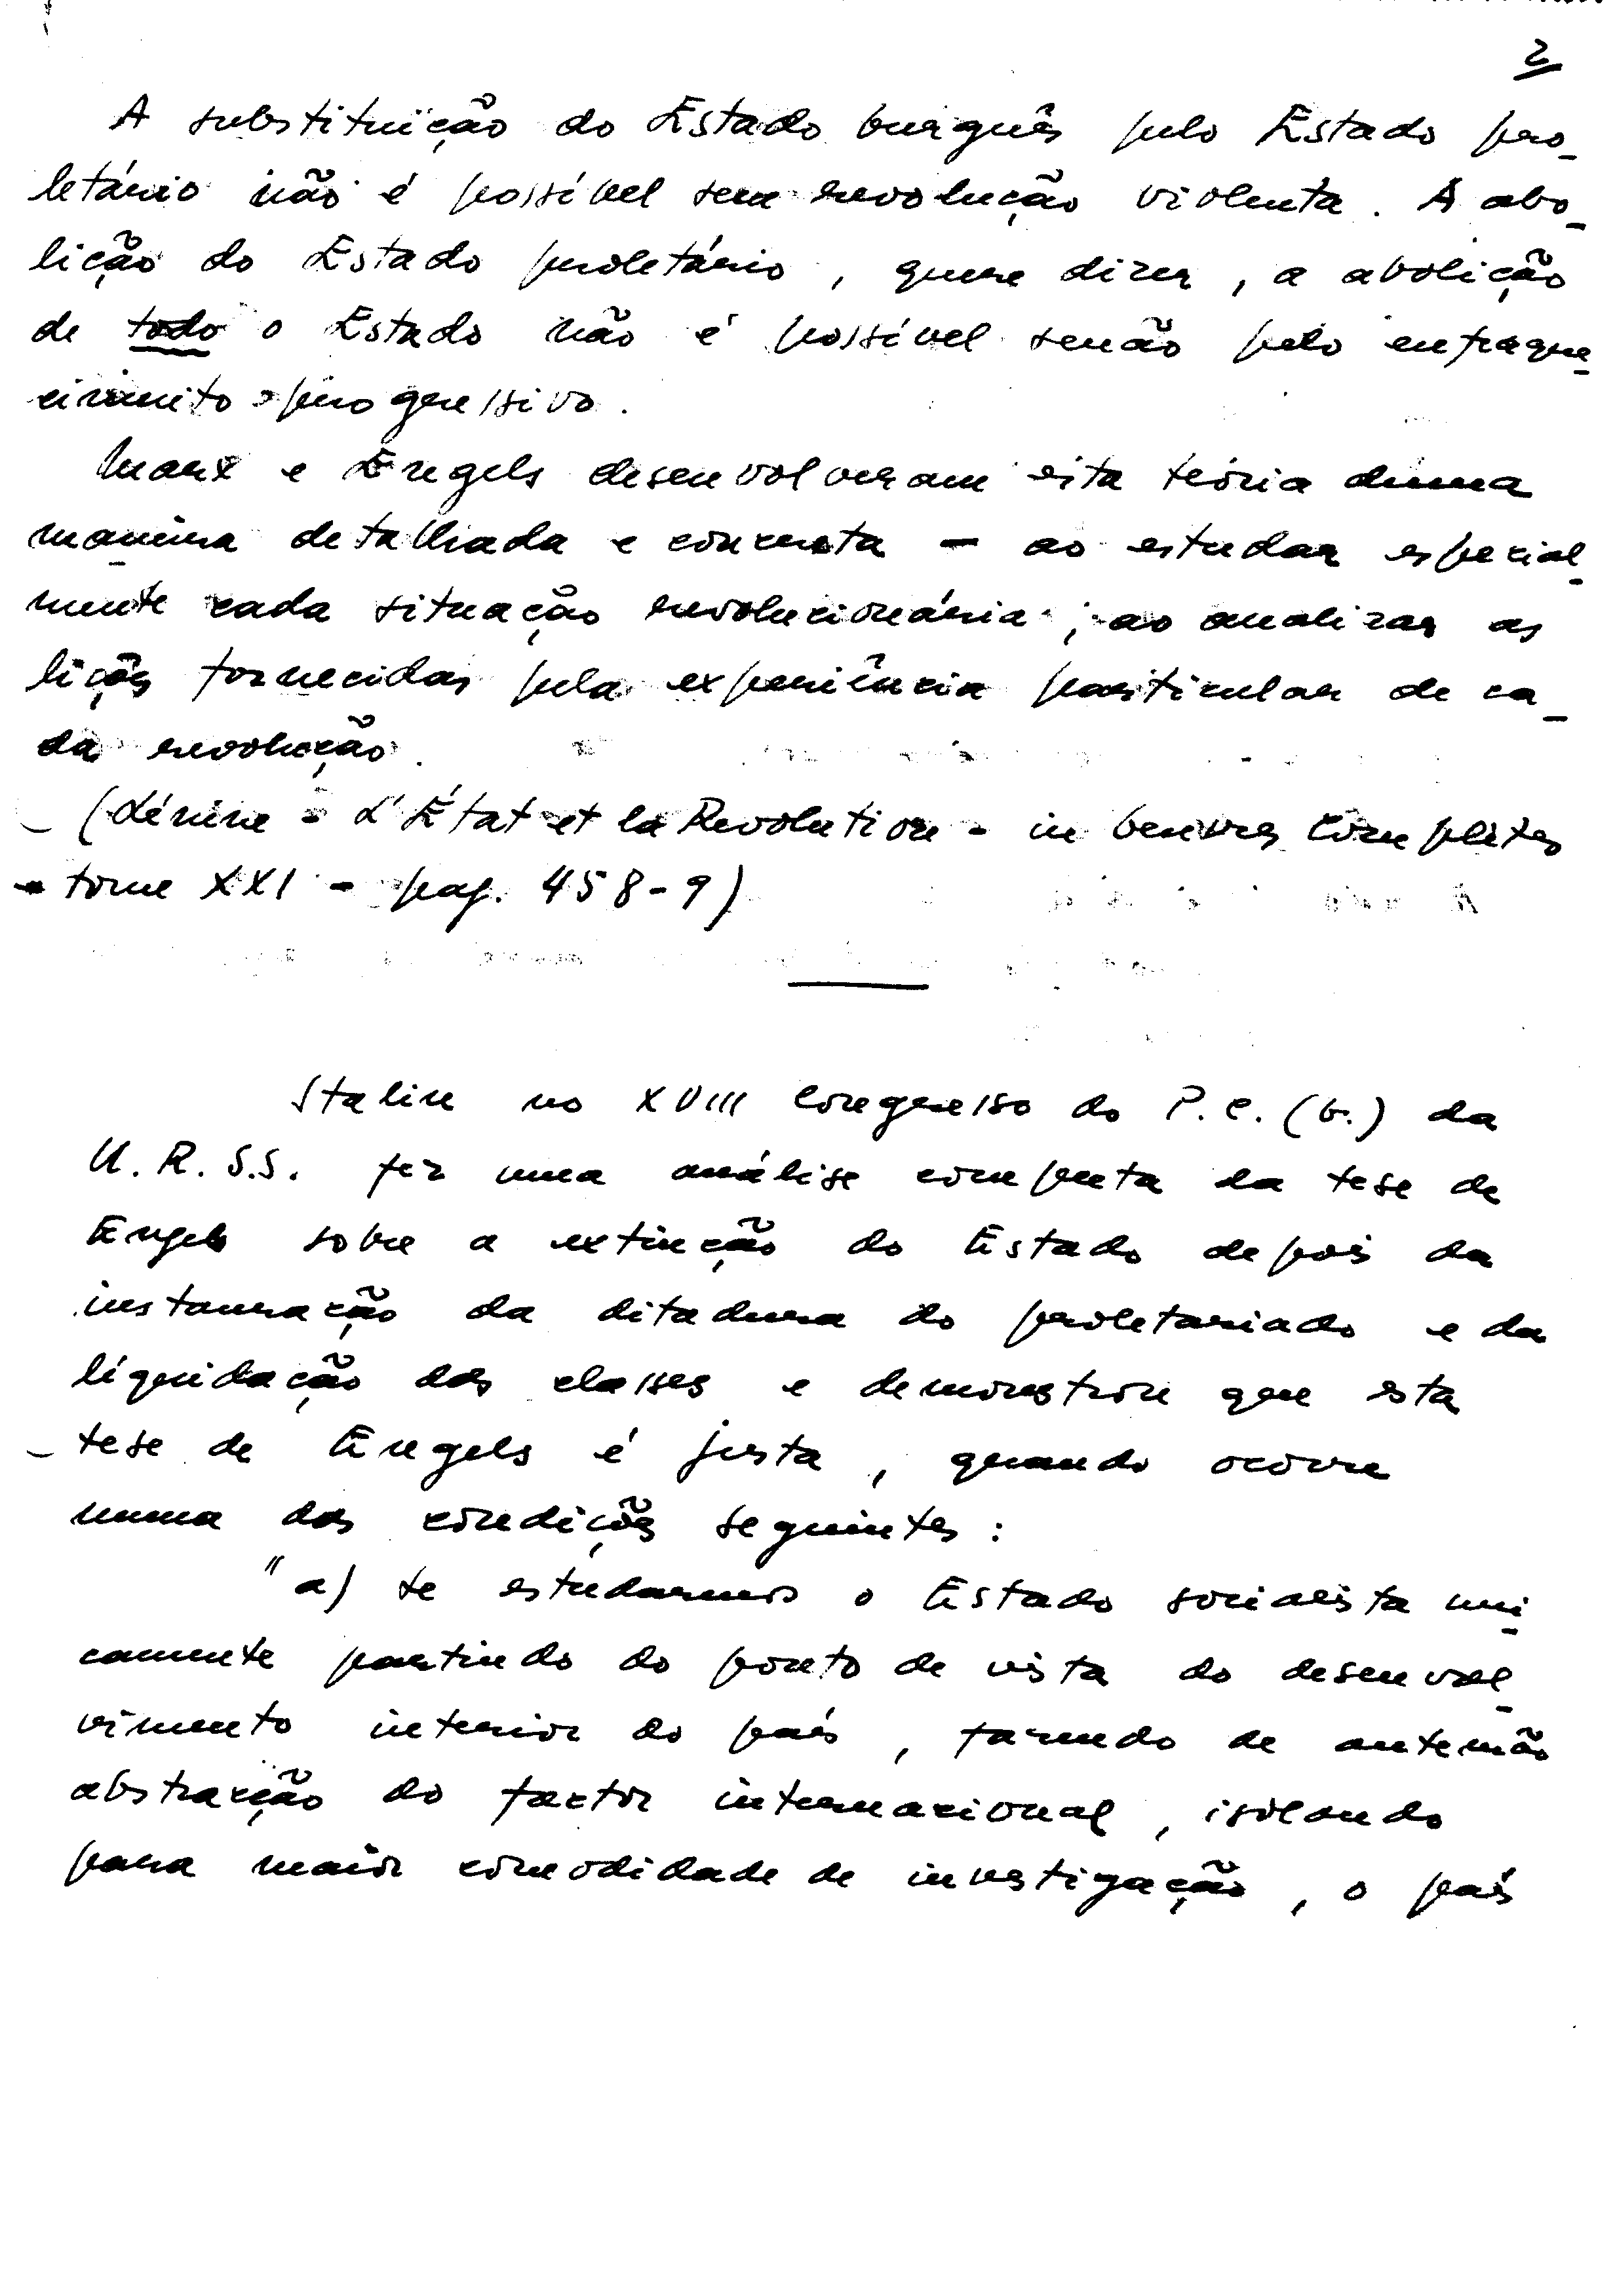 2
A substituïção do Estado burguês pelo Estado pro_
letário não é possível sem revolução violenta. A abo_
lição do Estado proletário, quere dizer, a abolição
de todo o Estado não é possível senão pelo enfraque_
cimento progressivo.
Marx e Engels desenvolveram esta teoria duma
maneira detalhada e concreta - ao estudar especial_
mente cada situação revolucionária, ao analizar as
lições fornecidas pela experiência particular de ca_
da revolução.
(Lénine - L'État et la Revolution - in Oeuvres Complètes
- tome XXI - pag. 458-9)
Staline no XVIII Congresso do P.C.(b.) da
U.R.S.S. fez uma análise completa da tese de
Engels sobre a extincção do Estado depois da
instauração da ditadura do proletariado e da
liquidação das classes e demonstrou que esta
tese de Engels é justa, quando ocorre
numa das condições seguintes:
"a) se estudarmos o Estado socialista uni_
camente partindo do ponto de vista do desenvol_
vimento interior do país, fazendo de antemão
abstracção do factor internacional, isolando
para maior comodidade de investigação, o país